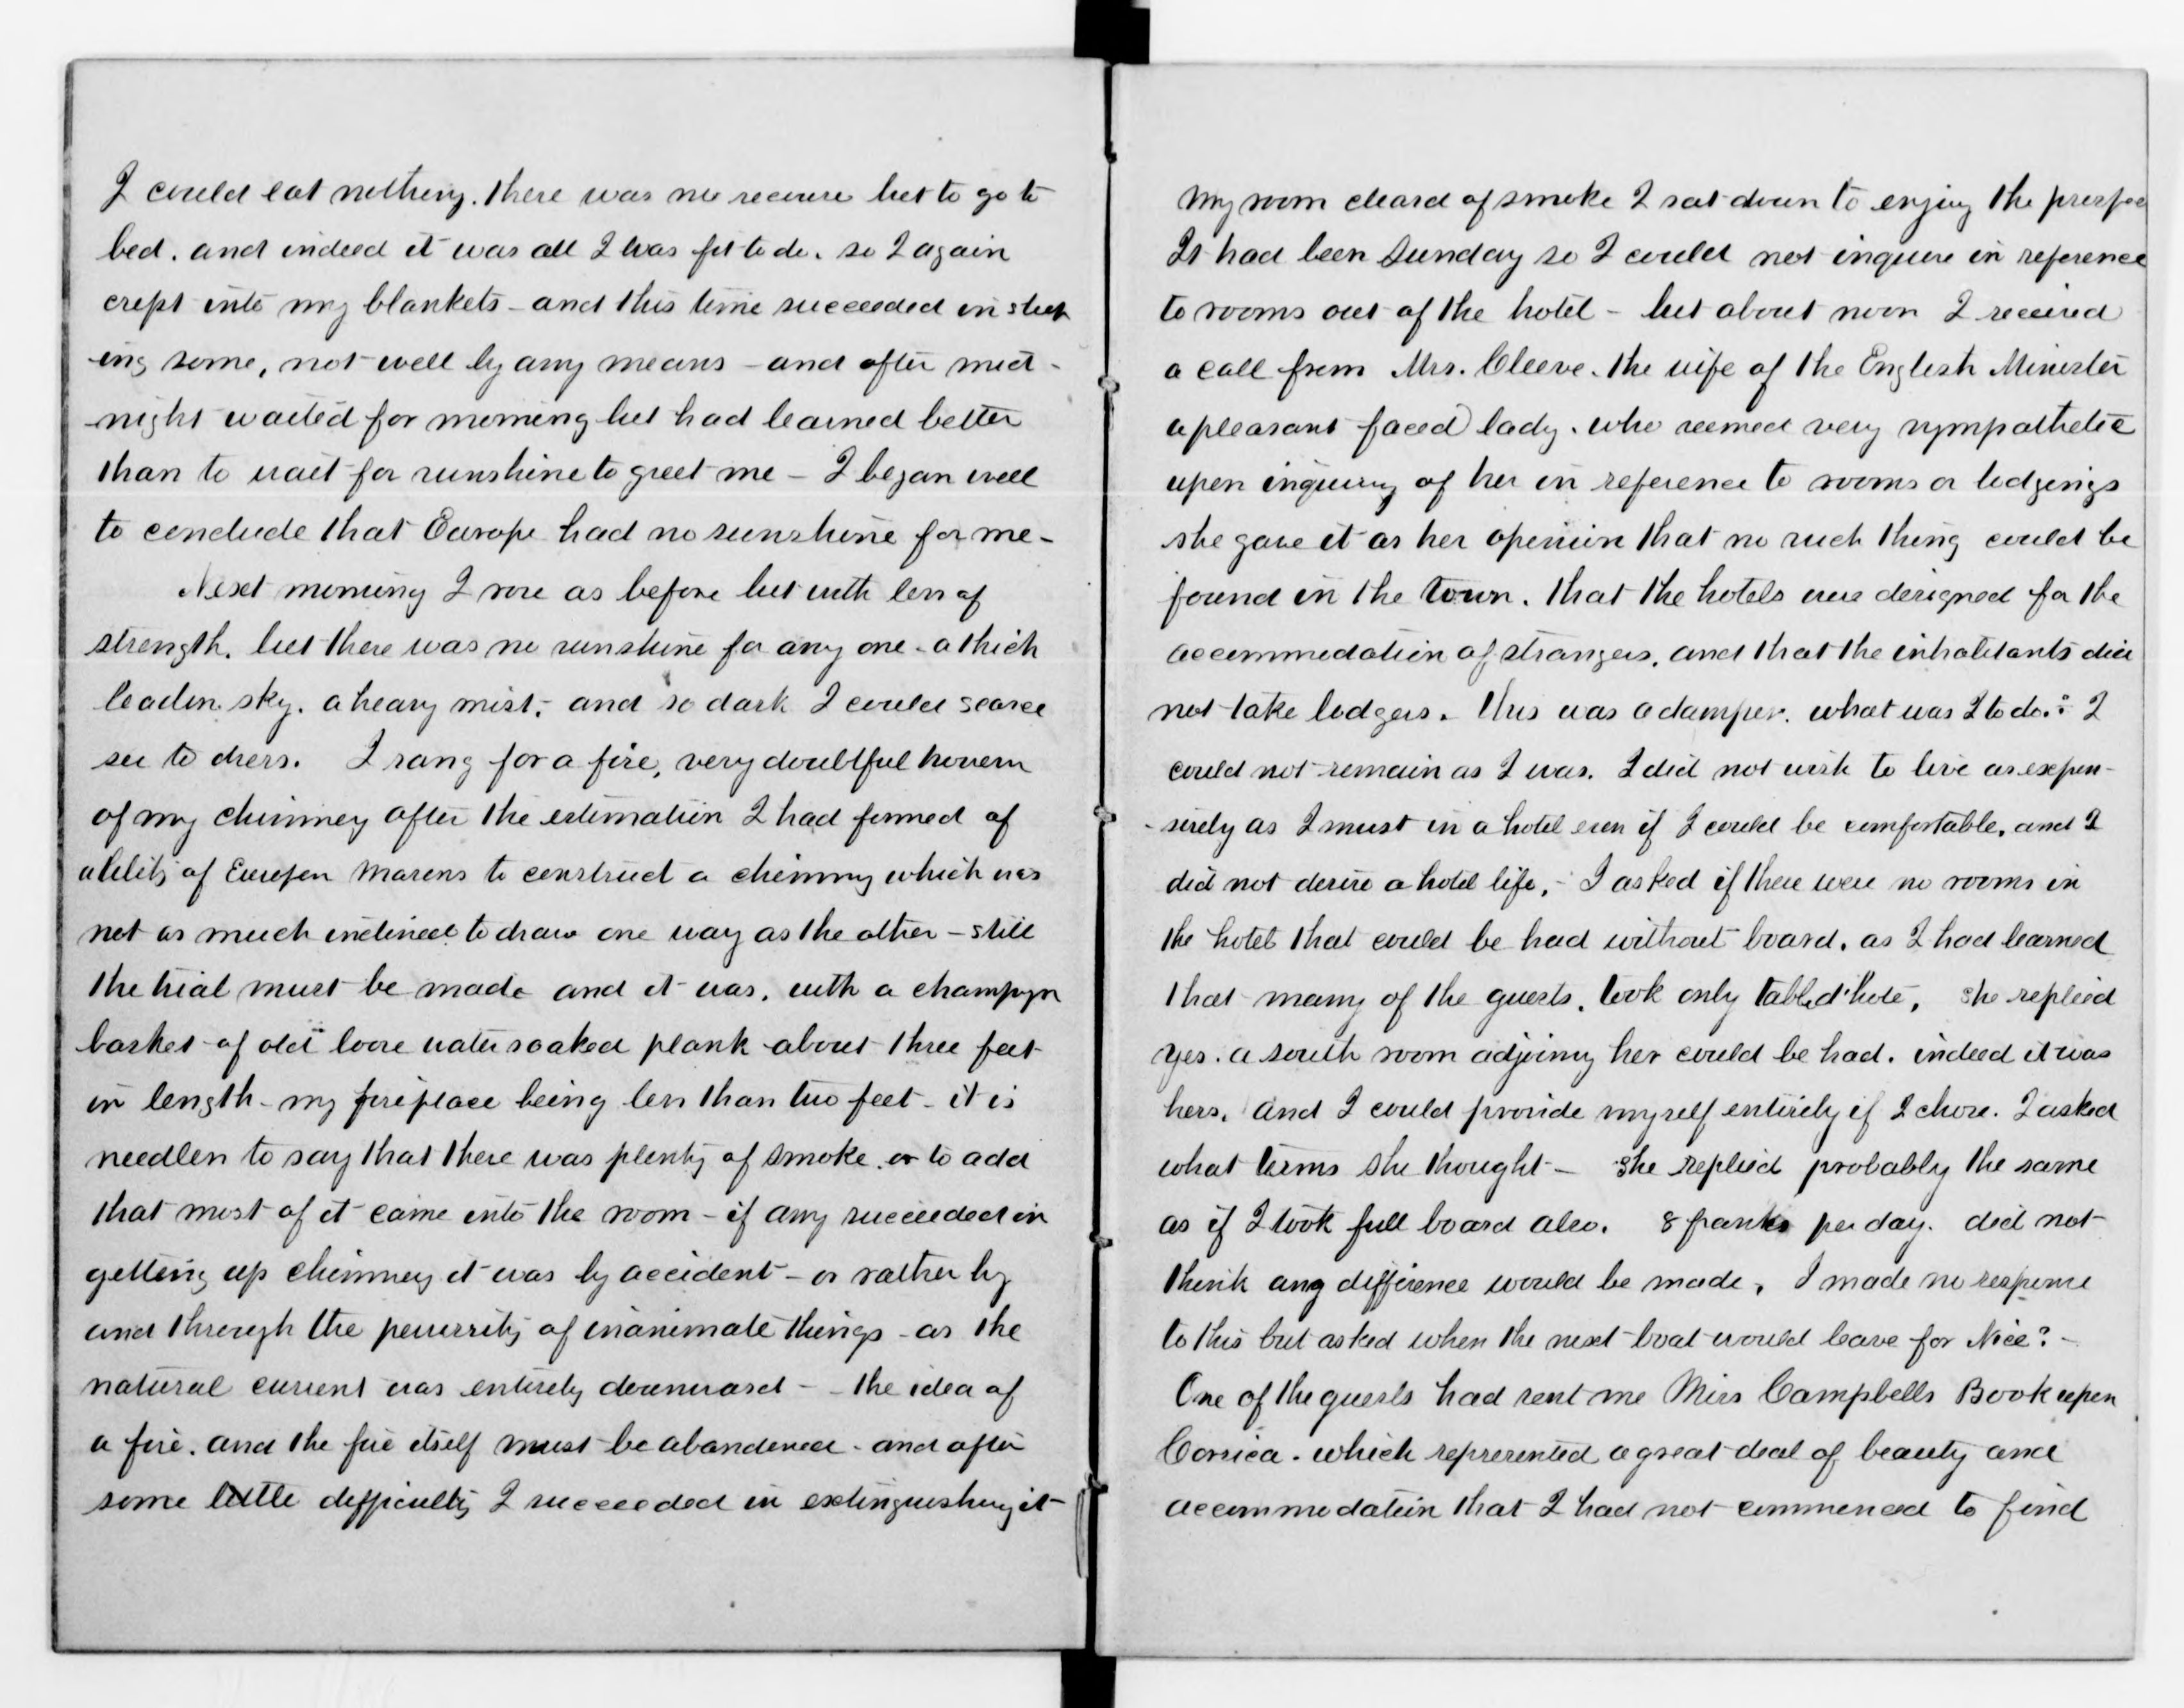 I could eat nothing. there was no recourse but to go to
bed. and indeed it was all I was fit to do. so I again
crept into my blankets - and this time succeeded in sleep
-ing some, not well by any means - and after mid -
-night waited for morning but had learned better
than to wait for sunshine to greet me - I began well
to conclude that Europe had no sunshine for me -
Next morning I rose as before but with less of
strength. but there was no sunshine for any one - a thick
leaden sky. a heavy mist, and so dark I could scarce
see to dress. I rang for a fire, very doubtful however
of my chimney after the estimation I had formed of
ability of Europen Masons to construct a chimny which was
not as much inclined to draw one way as the other - still
the trial must be made and it was. with a champyn
basket of old loose water soaked plank about three feet
in length - my fireplace being less than two feet - it is
needless to say that there was plenty of smoke. or to add
that most of it came into the room - if any succeeded in
getting up chimney it was by accident - or rather by
and through the perversity of inanimate things - as the
natural current was entirely downward - - the idea of
a fire. and the fire itself must be abandoned - and after
some little difficulty I succeeded in extinguishing it -
My room cleard of smoke I sat down to enjoy the prospec
It had been Sunday so I could not inquire in reference
to rooms out of the hotel - but about noon I received
a call from Mrs. Cleeve. the wife of the English Minister
a pleasant faced lady. who seemed very sympathetic
upon inquiry of her in reference to rooms or lodgings
she gave it as her opinion that no such thing could be
found in the town. that the hotels were designed for the
accommodation of strangers. and that the inhabitants did
not take lodgers. This was a damper. what was I to do. I
could not remain as I was. I did not wish to live as expen-
- sively as I must in a hotel even if I could be comfortable. and I
did not desire a hotel life, - I asked if there were no rooms in
the hotel that could be had without board. as I had learned
that many of the guests. took only tabled'hote, she replied
yes. a south room adjoinny her could be had. indeed it was
hers. and I could provide myself entirely if I chose. I asked
what terms she thought - she replied probably the same
as if I took full board also. 8 franks per day. did not
think any difference would be made, I made no response
to this but asked when the next boat would leave for Nice? -
One of the guests had sent me Miss Campbells Book upon
Corsica. which represented a great deal of beauty and
accommodation that I had not commenced to find